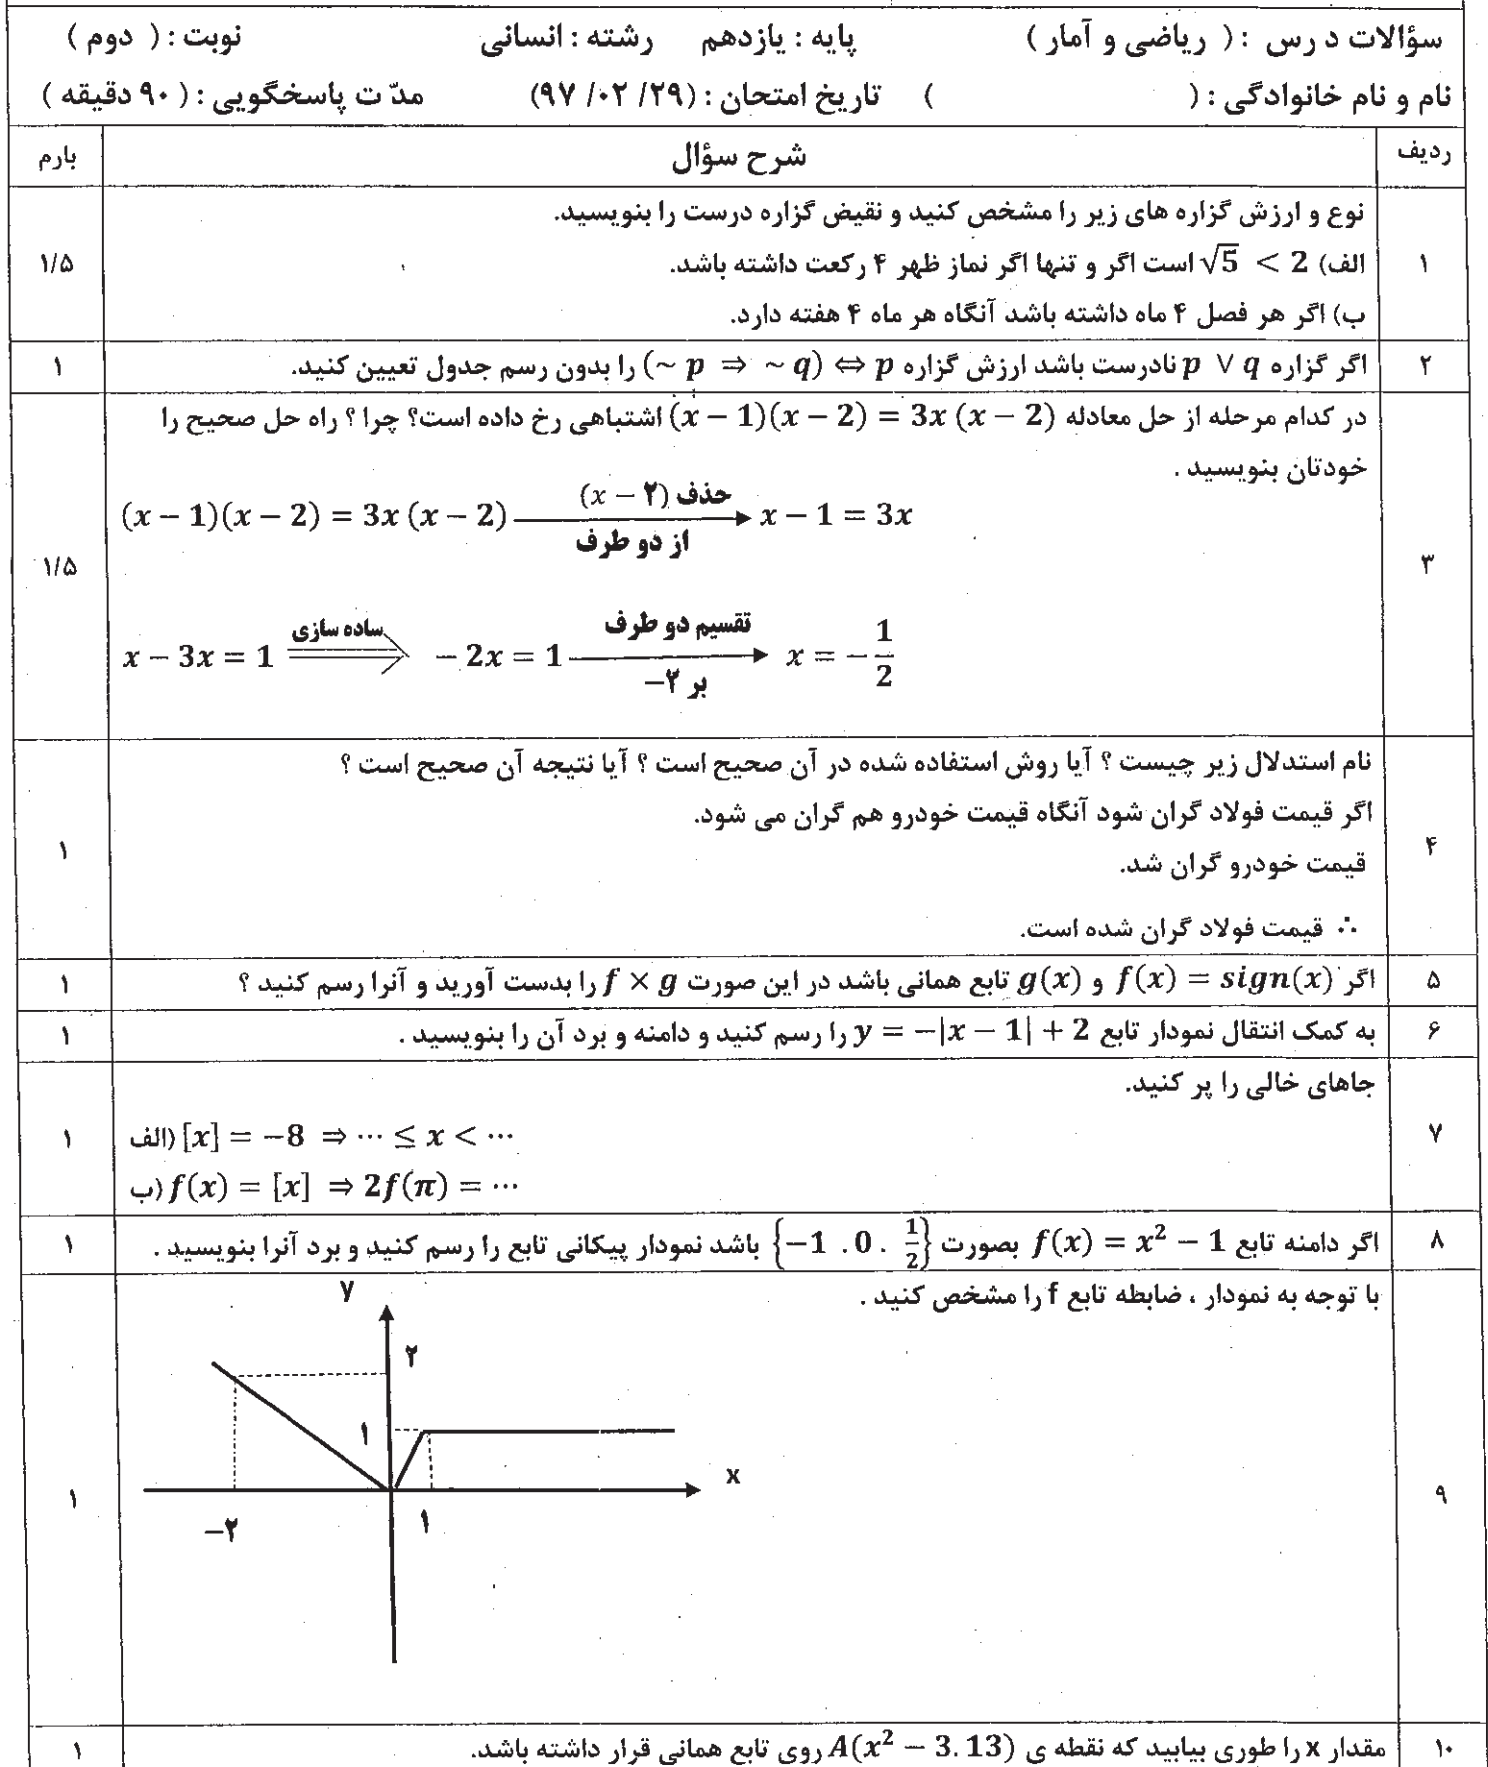 سؤالات درس : ( ریاضی و آمار ) پایه : یازدهم رشته : انسانی نوبت : ( دوم )
نام و نام خانوادگی : ( ) تاریخ امتحان : (۹۷/۰۲/۲۹) مدّت پاسخگویی : ( ۹۰ دقیقه )
ردیف شرح سؤال بارم
نوع و ارزش گزاره های زیر را مشخص کنید و نقیض گزاره درست را بنویسید.
۱ الف) √5 < 2 است اگر و تنها اگر نماز ظهر ۴ رکعت داشته باشد. ۱/۵
ب) اگر هر فصل ۴ ماه داشته باشد آنگاه هر ماه ۴ هفته دارد.
۲ اگر گزاره p ∨ q نادرست باشد ارزش گزاره (~ p ⇒ ~ q) ⇔ p را بدون رسم جدول تعیین کنید. ۱
در کدام مرحله از حل معادله (x − 1)(x − 2) = 3x (x − 2) اشتباهی رخ داده است؟ چرا ؟ راه حل صحیح را
خودتان بنویسید .
حذف (x − ۲)
(x − 1)(x − 2) = 3x (x − 2) → x − 1 = 3x
از دو طرف
۳ ۱/۵
ساده سازی تقسیم دو طرف
x − 3x = 1 ⟹ − 2x = 1 → x = −1/2
بر ۲−
نام استدلال زیر چیست ؟ آیا روش استفاده شده در آن صحیح است ؟ آیا نتیجه آن صحیح است ؟
اگر قیمت فولاد گران شود آنگاه قیمت خودرو هم گران می شود.
۴ ۱
قیمت خودرو گران شد.
∴ قیمت فولاد گران شده است.
۵ اگر f(x) = sign(x) و g(x) تابع همانی باشد در این صورت f × g را بدست آورید و آنرا رسم کنید ؟ ۱
۶ به کمک انتقال نمودار تابع y = −|x − 1| + 2 را رسم کنید و دامنه و برد آن را بنویسید . ۱
جاهای خالی را پر کنید.
۷ الف) [x] = −8 ⇒ ··· ≤ x < ··· ۱
ب) f(x) = [x] ⇒ 2f(π) = ···
۸ اگر دامنه تابع f(x) = x² − 1 بصورت {−1 . 0 . 1/2} باشد نمودار پیکانی تابع را رسم کنید و برد آنرا بنویسید . ۱
با توجه به نمودار ، ضابطه تابع f را مشخص کنید .
y
۲
۱
x
۹ ۱
−۲ ۱
۱۰ مقدار x را طوری بیابید که نقطه ی A(x² − 3. 13) روی تابع همانی قرار داشته باشد. ۱